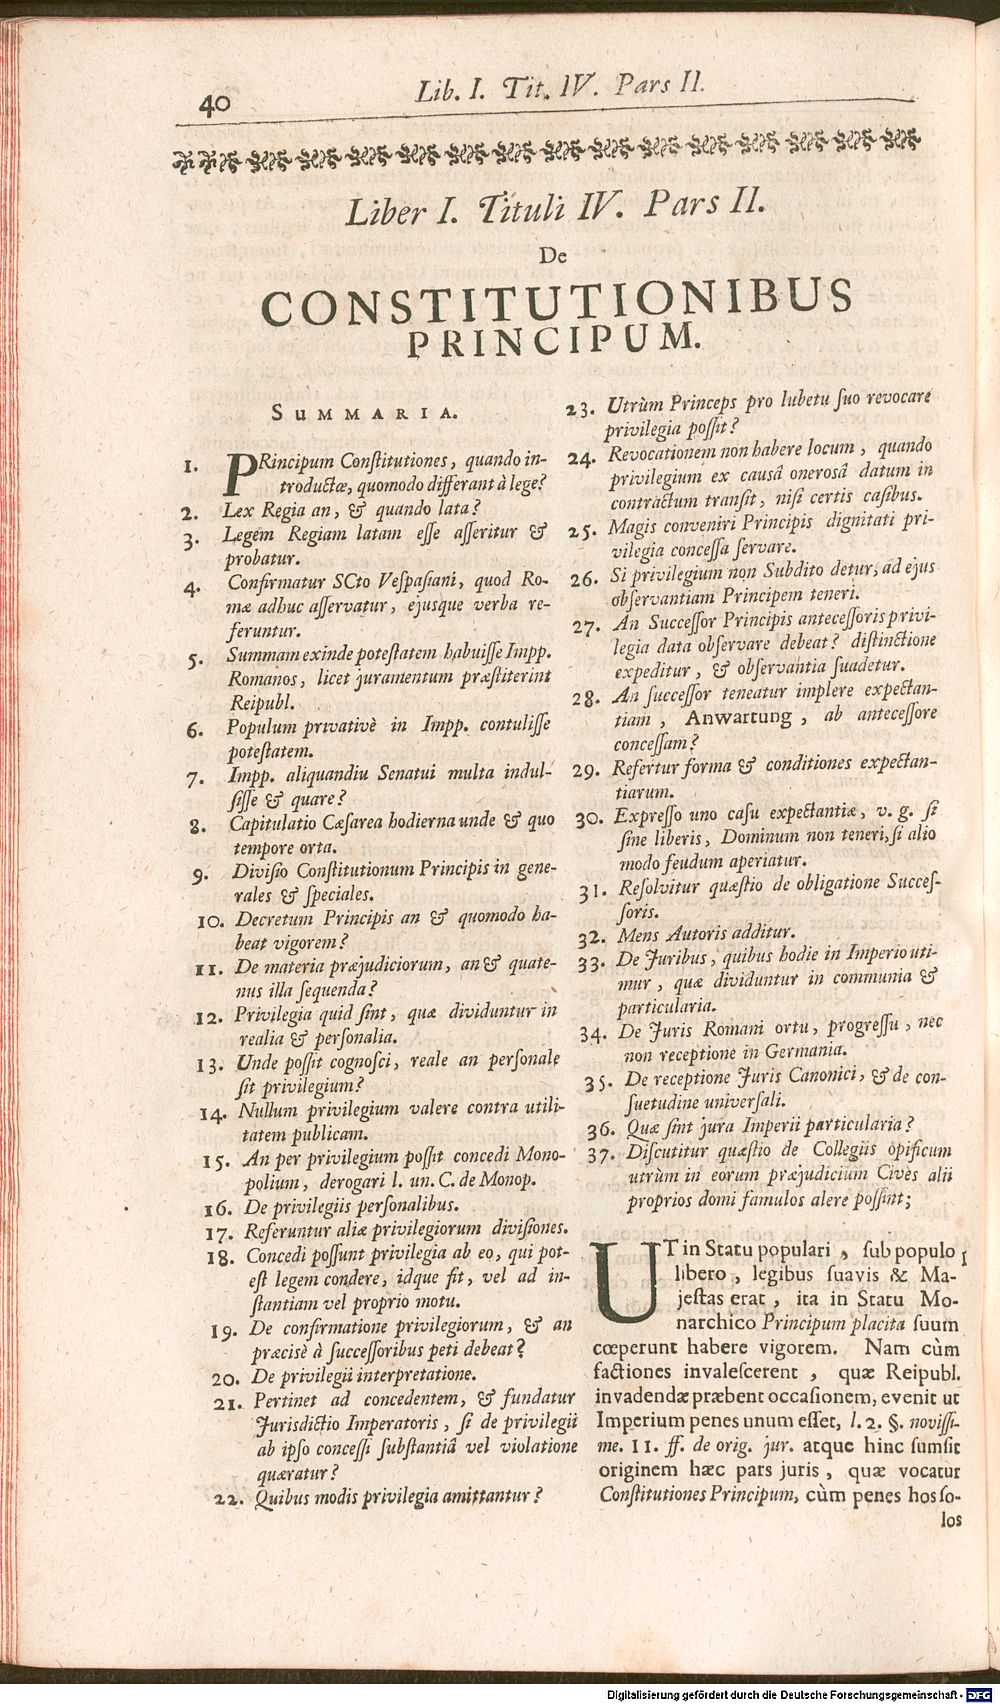 40
Lib. I. Tit. IV. Pars II.
Liber I. Tituli IV. Pars II.
De
CONSTITUTIONIBUS
PRINCIPUM.
SUMMARIA.
1. PRincipum Constitutiones, quando in-
troductæ, quomodo differant à lege?
2. Lex Regia an, & quando lata?
3. Legem Regiam latam esse asseritur &
probatur.
4. Confirmatur SCto Vespasiani, quod Ro-
mæ adhuc asservatur, ejusque verba re-
feruntur.
5. Summam exinde potestatem habuisse Impp.
Romanos, licet juramentum præstiterint
Reipubl.
6. Populum privativè in Impp. contulisse
potestatem.
7. Impp. aliquandiu Senatui multa indul-
sisse & quare?
8. Capitulatio Cæsarea hodierna unde & quo
tempore orta.
9. Divisio Constitutionum Principis in gene-
rales & speciales.
10. Decretum Principis an & quomodo ha-
beat vigorem?
11. De materia præjudiciorum, an & quate-
nus illa sequenda?
12. Privilegia quid sint, quæ dividuntur in
realia & personalia.
13. Unde possit cognosci, reale an personale
sit privilegium?
14. Nullum privilegium valere contra utili-
tatem publicam.
15. An per privilegium possit concedi Mono-
polium, derogari l. un. C. de Monop.
16. De privilegiis personalibus.
17. Referuntur aliæ privilegiorum divisiones.
18. Concedi possunt privilegia ab eo, qui pot-
est legem condere, idque fit, vel ad in-
stantiam vel proprio motu.
19. De confirmatione privilegiorum, & an
præcisè à successoribus peti debeat?
20. De privilegii interpretatione.
21. Pertinet ad concedentem, & fundatur
Jurisdictio Imperatoris, si de privilegii
ab ipso concessi substantiâ vel violatione
quæratur?
22. Quibus modis privilegia amittantur?
23. Utrùm Princeps pro lubetu suo revocare
privilegia possit?
24. Revocationem non habere locum, quando
privilegium ex causâ onerosâ datum in
contractum transit, nisi certis casibus.
25. Magis conveniri Principis dignitati pri-
vilegia concessa servare.
26. Si privilegium non Subdito detur, ad ejus
observantiam Principem teneri.
27. An Successor Principis antecessoris privi-
legia data observare debeat? distinctione
expeditur, & observantia suadetur.
28. An successor teneatur implere expectan-
tiam, Anwartung, ab antecessore
concessam?
29. Refertur forma & conditiones expectan-
tiarum.
30. Expresso uno casu expectantiæ, v. g. si
sine liberis, Dominum non teneri, si alio
modo feudum aperiatur.
31. Resolvitur quæstio de obligatione Succes-
soris.
32. Mens Autoris additur.
33. De Juribus, quibus hodie in Imperio uti-
mur, quæ dividuntur in communia &
particularia.
34. De Juris Romani ortu, progressu, nec
non receptione in Germania.
35. De receptione Juris Canonici, & de con-
suetudine universali.
36. Quæ sint jura Imperii particularia?
37. Discutitur quæstio de Collegiis opificum
utrùm in eorum præjudicium Cives alii
proprios domi famulos alere possint;
UT in Statu populari, sub populo 1
libero, legibus suavis & Ma-
jestas erat, ita in Statu Mo-
narchico Principum placita suum
cœperunt habere vigorem. Nam cùm
factiones invalescerent, quæ Reipubl.
invadendæ præbent occasionem, evenit ut
Imperium penes unum esset, l. 2. §. novissi-
me. 11. ff. de orig. jur. atque hinc sumsit
originem hæc pars juris, quæ vocatur
Constitutiones Principum, cùm penes hos so-
los
Digitalisierung gefördert durch die Deutsche Forschungsgemeinschaft - DFG